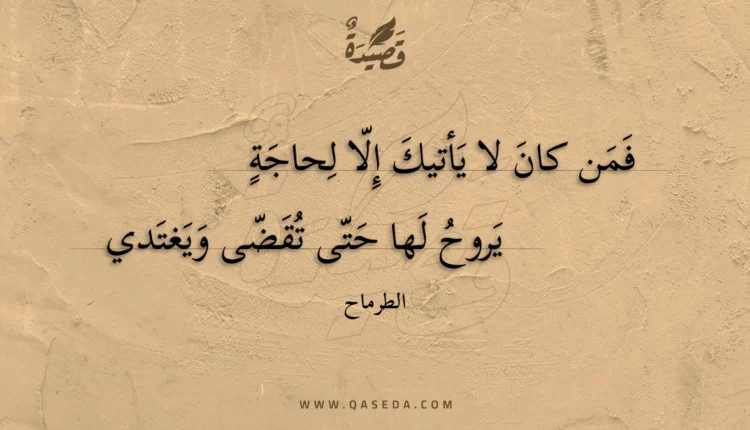 قَصِيدَةٌ
فَمَن كانَ لا يَأتيكَ إِلّا لِحاجَةٍ
يَروحُ لَها حَتّى تُقَضّى وَيَغتَدي
الطرماح
WWW.QASEDA.COM